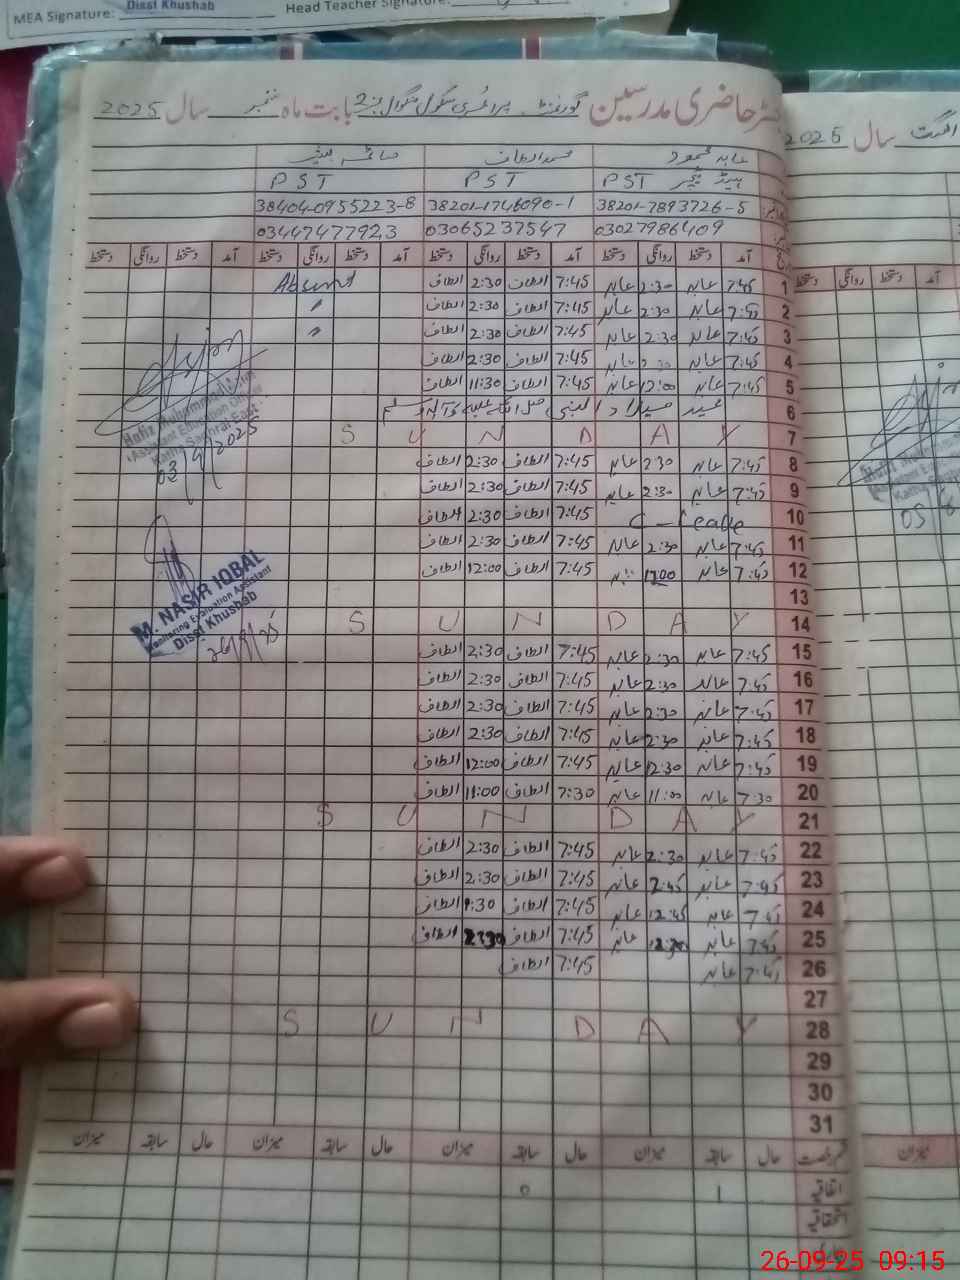 MEA Signature: Disst Khushab Head Teacher Signature:
رجسٹر حاضری مدرسین گورنمنٹ پرائمری سکول بابت ماہ ستمبر سال 2025
اگست سال 2025
عابد محمود محمد الطاف صائمہ
ہیڈ ٹیچر PST PST PST
38201-7893726-5 38201-1746090-1 38404-0955223-8
03027986409 03065237547 03447477923
آمد دستخط روانگی دستخط آمد دستخط روانگی دستخط آمد دستخط روانگی دستخط آمد دستخط روانگی دستخط
1 7:45 عابد 2:30 عابد 7:45 الطاف 2:30 الطاف Absent
2 7:45 عابد 2:30 عابد 7:45 الطاف 2:30 الطاف "
3 7:45 عابد 2:30 عابد 7:45 الطاف 2:30 الطاف "
4 7:45 عابد 2:30 عابد 7:45 الطاف 2:30 الطاف
5 7:45 عابد 12:00 عابد 7:45 الطاف 11:30 الطاف
6 عید میلاد النبی صلی اللہ علیہ وآلہ وسلم
7 SUNDAY
8 7:45 عابد 2:30 عابد 7:45 الطاف 2:30 الطاف
9 7:45 عابد 2:30 عابد 7:45 الطاف 2:30 الطاف
10 C-Leave 7:45 الطاف 2:30 الطاف
11 7:45 عابد 2:30 عابد 7:45 الطاف 2:30 الطاف
12 7:45 عابد 12:00 عابد 7:45 الطاف 12:00 الطاف
13
14 SUNDAY
15 7:45 عابد 2:30 عابد 7:45 الطاف 2:30 الطاف
16 7:45 عابد 2:30 عابد 7:45 الطاف 2:30 الطاف
17 7:45 عابد 2:30 عابد 7:45 الطاف 2:30 الطاف
18 7:45 عابد 2:30 عابد 7:45 الطاف 2:30 الطاف
19 7:45 عابد 12:30 عابد 7:45 الطاف 12:00 الطاف
20 7:30 عابد 11:00 عابد 7:30 الطاف 11:00 الطاف
21 SUNDAY
22 7:45 عابد 2:30 عابد 7:45 الطاف 2:30 الطاف
23 7:45 عابد 2:45 عابد 7:45 الطاف 2:30 الطاف
24 7:45 عابد 12:45 عابد 7:45 الطاف 1:30 الطاف
25 7:45 عابد عابد 7:45 الطاف 2:30 الطاف
26 7:45 عابد 7:45 الطاف
27
28 SUNDAY
29
30
31
Hafiz Muhammad
Assistant Education Officer
Katha Saghral East
03/9/2025
M. NASIR IQBAL
Monitoring Evaluation Assistant
Disst Khushab
26/9/25
قسم رخصت حال سابقہ میزان حال سابقہ میزان حال سابقہ میزان حال سابقہ میزان
اتفاقیہ 1 0
استحقاقیہ
26-09-25 09:15